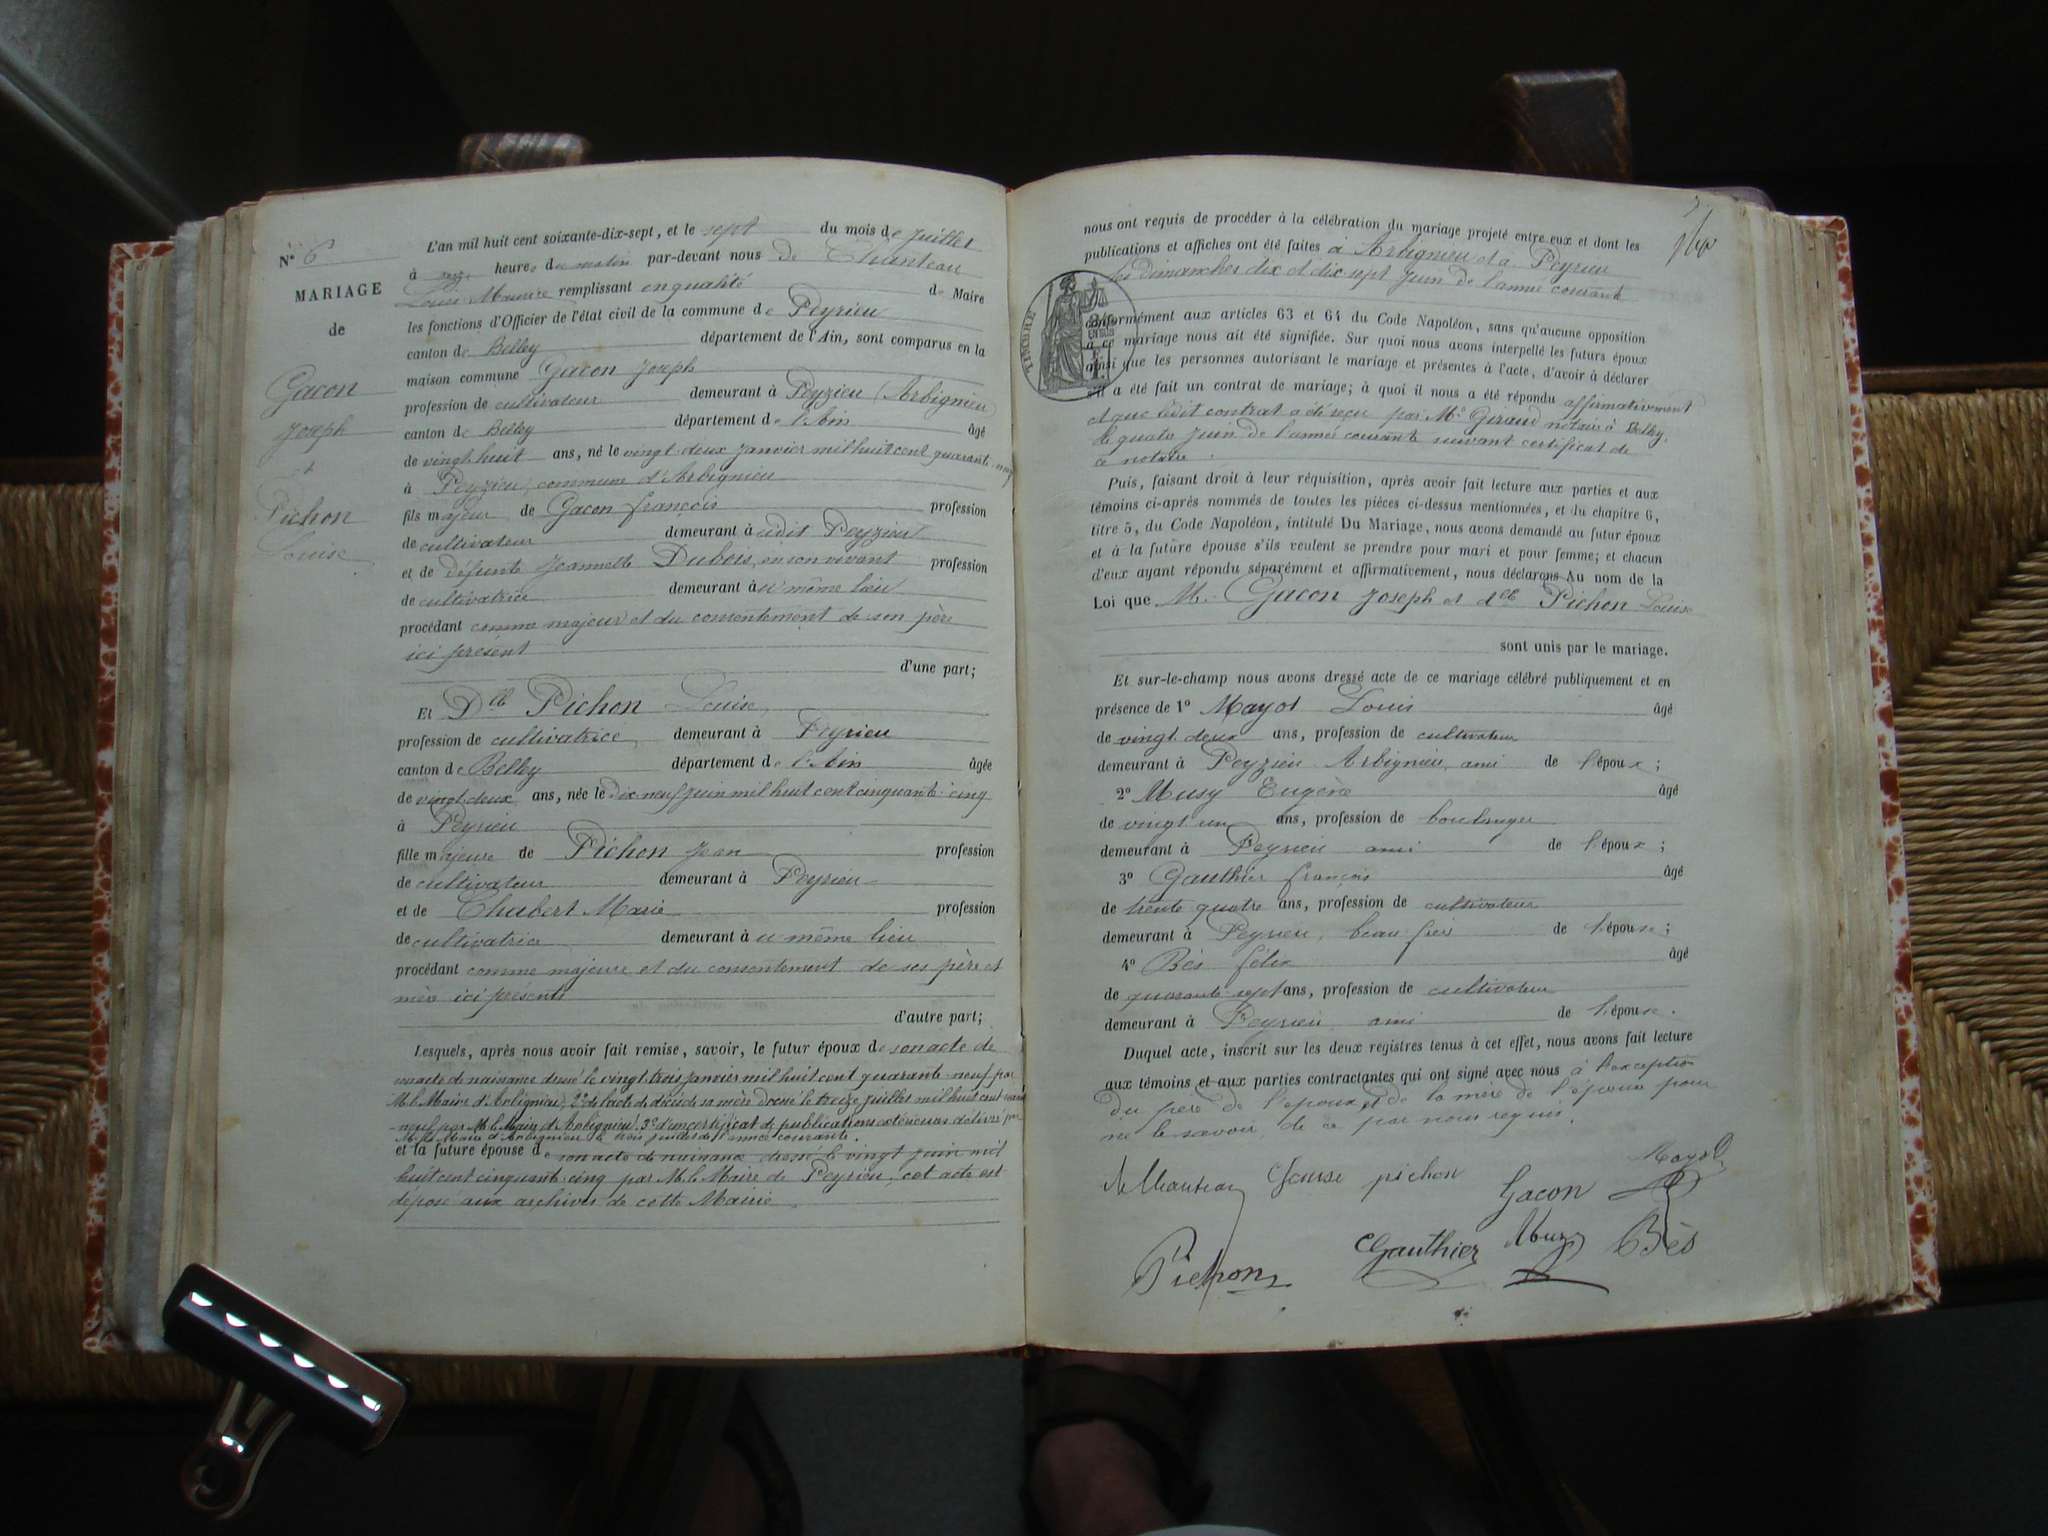 N° 6
MARIAGE
de
Gacon
Joseph
et
Pichon
Louise
L'an mil huit cent soixante-dix-sept, et le sept du mois de juillet
à onze heures du matin par-devant nous De Chanteau
Louis Maurice remplissant en qualité de Maire
les fonctions d'Officier de l'état civil de la commune de Peyrieu
canton de Belley département de l'Ain, sont comparus en la
maison commune Gacon Joseph
profession de cultivateur demeurant à Peyzieu (Arbignieu)
canton de Belley département de l'Ain âgé
de vingt huit ans, né le vingt-deux janvier mil huit cent quarante-neuf
à Peyzieu, commune d'Arbignieu
fils majeur de Gacon françois profession
de cultivateur demeurant à udit Peyzieu
et de défunte Jeannette Dubois, en son vivant profession
de cultivatrice demeurant à u même lieu
procédant comme majeur et du consentement de son père
ici présent
d'une part;
Et Dlle Pichon Louise
profession de cultivatrice demeurant à Peyrieu
canton de Belley département de l'Ain âgée
de vingt deux ans, née le dix neuf juin mil huit cent cinquante-cinq
à Peyrieu
fille majeure de Pichon Jean profession
de cultivateur demeurant à Peyrieu
et de Chubert Marie profession
de cultivatrice demeurant à u même lieu
procédant comme majeure et du consentement de ses père et
mère ici présents
d'autre part;
Lesquels, après nous avoir fait remise, savoir, le futur époux de son acte de
son acte de naissance dressé le vingt trois janvier mil huit cent quarante-neuf par
M. le Maire d'Arbignieu, 2° de l'acte de décès de sa mère dressé le treize juillet mil huit cent
-neuf par M. le Maire d'Arbignieu. 3° d'un certificat de publications extérieures délivré par
M. le Maire d'Arbignieu le trois juillet de l'année courante.
et la future épouse de son acte de naissance dressé le vingt juin mil
huit cent cinquante-cinq par M. le Maire de Peyrieu, cet acte est
déposé aux archives de cette Mairie
nous ont requis de procéder à la célébration du mariage projeté entre eux et dont les
publications et affiches ont été faites à Arbignieu et à Peyrieu
les dimanches dix et dix-sept juin de l'année courante
TIMBRE
conformément aux articles 63 et 64 du Code Napoléon, sans qu'aucune opposition
à ce mariage nous ait été signifiée. Sur quoi nous avons interpellé les futurs époux
ainsi que les personnes autorisant le mariage et présentes à l'acte, d'avoir à déclarer
s'il a été fait un contrat de mariage; à quoi il nous a été répondu affirmativement
et que ledit contrat a été reçu par Me Giraud notaire à Belley,
le quatre juin de l'année courante suivant certificat de
ce notaire.
Puis, faisant droit à leur réquisition, après avoir fait lecture aux parties et aux
témoins ci-après nommés de toutes les pièces ci-dessus mentionnées, et du chapitre 6,
titre 5, du Code Napoléon, intitulé Du Mariage, nous avons demandé au futur époux
et à la future épouse s'ils veulent se prendre pour mari et pour femme; et chacun
d'eux ayant répondu séparément et affirmativement, nous déclarons Au nom de la
Loi que M. Gacon Joseph et dlle Pichon Louise
sont unis par le mariage.
Et sur-le-champ nous avons dressé acte de ce mariage célébré publiquement et en
présence de 1° Mayot Louis âgé
de vingt deux ans, profession de cultivateur
demeurant à Peyzieu Arbignieu, ami de l'époux;
2° Musy Eugène âgé
de vingt un ans, profession de boulanger
demeurant à Peyrieu ami de l'époux;
3° Gauthier françois âgé
de trente quatre ans, profession de cultivateur
demeurant à Peyrieu, beau frère de l'épouse;
4° Bès félix âgé
de quarante-sept ans, profession de cultivateur
demeurant à Peyrieu ami de l'épouse.
Duquel acte, inscrit sur les deux registres tenus à cet effet, nous avons fait lecture
aux témoins et aux parties contractantes qui ont signé avec nous à l'exception
du père de l'époux et de la mère de l'épouse pour
ne le savoir, de ce par nous requis.
Louise pichon
Gacon
Mayot
Pichon
Gauthier
Musy
Bès